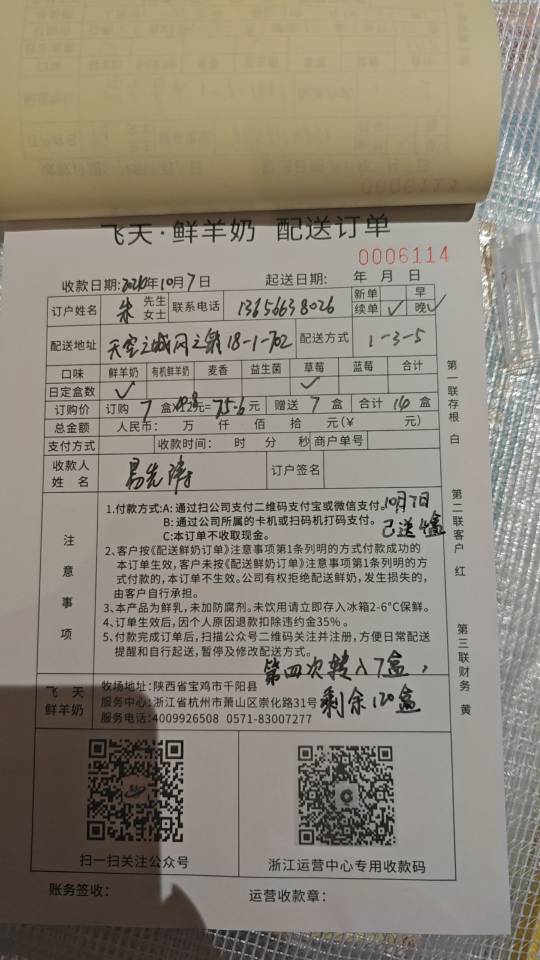 飞天·鲜羊奶 配送订单
0006114
收款日期:2024年10月7日 起送日期: 年 月 日
订户姓名 朱 先生 女士 联系电话 13656638026 新单 续单 ✓ 早 晚 ✓
配送地址 天空之城 18-1-702 配送方式 1-3-5
口味 鲜羊奶 有机鲜羊奶 麦香 益生菌 草莓 蓝莓 合计
日定盒数 ✓ ✓
订购价 订购 7 盒 元=75.6元 赠送 7 盒 合计 14 盒
总金额 人民币: 万 仟 佰 拾 元(￥ 元)
支付方式 收款时间: 时 分 秒 商户单号
收款人姓名 易先涛 订户签名
注意事项
1.付款方式:A:通过扫公司支付二维码支付宝或微信支付。
B:通过公司所属的卡机或扫码机打码支付。
C:本订单不收取现金。
10月7日
已送4盒
2、客户按《配送鲜奶订单》注意事项第1条列明的方式付款成功的
本订单生效，客户未按《配送鲜奶订单》注意事项第1条列明的方
式付款的，本订单不生效。公司有权拒绝配送鲜奶，发生损失的，
由客户自行承担。
3、本产品为鲜乳，未加防腐剂。未饮用请立即存入冰箱2-6℃保鲜。
4、订单生效后，因个人原因退款扣除违约金35%。
5、付款完成订单后，扫描公众号二维码关注并注册，方便日常配送
提醒和自行起送，暂停及修改配送方式。
第四次转入7盒，
剩余120盒
飞天鲜羊奶
牧场地址:陕西省宝鸡市千阳县
服务中心:浙江省杭州市萧山区崇化路31号
服务电话:4009926508 0571-83007277
扫一扫关注公众号
浙江运营中心专用收款码
账务签收: 运营收款章:
第一联存根 白
第二联客户 红
第三联财务 黄